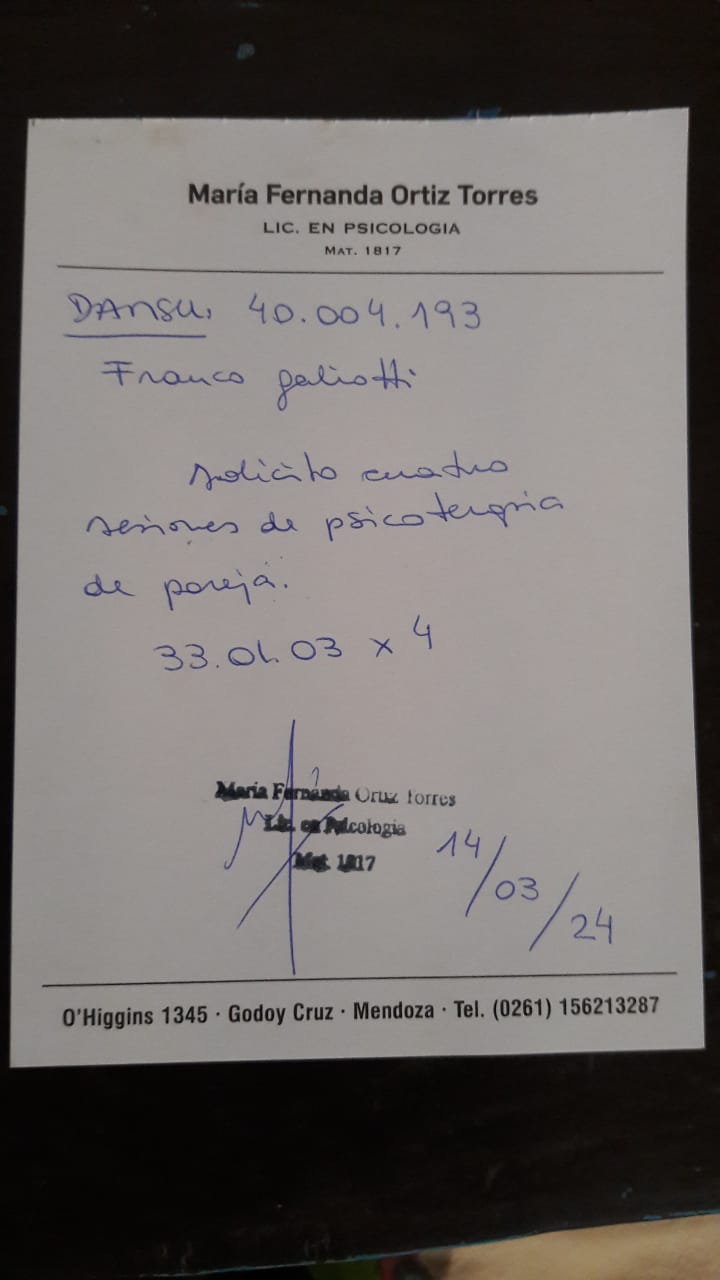 María Fernanda Ortiz Torres
LIC. EN PSICOLOGIA
MAT. 1817
DAMSU. 40.004.193
Franco Galiotti
solicito cuatro
sesiones de psicoterapia
de pareja.
33.01.03 x 4
María Fernanda Ortiz Torres
Lic. en Psicologia
Mat. 1817
14/03/24
O'Higgins 1345 · Godoy Cruz · Mendoza · Tel. (0261) 156213287